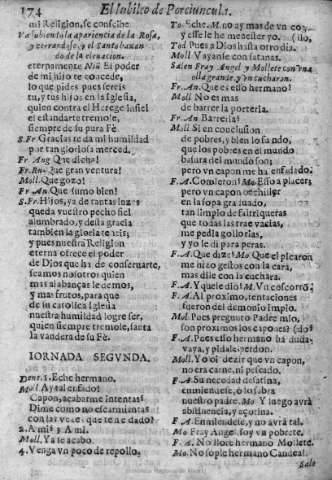 174 El Iubileo de Porciuncula.
mi Religion, se confesse
Va subiendo la apariencia de la Rosa,
y cerrandose, y el Santo baxan
do de la eleuacion.
eternamente Niñ. El poder
de mi hijo te concede,
lo que pides pues sereis
tu, y tus hijos en la Iglesia,
quien contra el Herege insiel
el estandarte tremole,
siempre de su pura Fè.
S. Fr. Gracias te dà mi humildad
por tan gloriosa merced.
Fr Ang Que dicha!
Fr. An. Que gran ventura!
Moll. Que gozo!
Fr. An. Que sumo bien!
S. Fr. Hijos, ya de tantas luzes
queda vuestro pecho fiel
alumbrado, y de la gracia
tambien la gloria teneis;
y pues nuestra Religion
eterna ofrece el poder
de Dios que ha de conseruarse,
seamos nosotros quien
mas alabanças le demos,
y mas frutos, para que
de su catolica Iglesia
nuestra humildad logre ser,
quien siempre tremole, santa
la vandera de su Fè.
IORNADA SEGVNDA.
Dent. 1. Eche hermano.
Moll Ay tal enfado!
Capon, acabarme intentas?
Dime como no escarmientas
con las vezes que te he dado?
2. A mi? 3 A mi.
Moll, Ya te acabo.
4. Venga vn poco de repollo.
To Eche. M. no ay mas de vn coço,
y esse le he menester yo.
Tod Pues a Dios hasta otro dia.
Moll Vayanse con satanas.
Salen Fray Angel y Mollete con vna
olla grande, y vn cucharon.
Fr An. Que es esso hermano?
Moll No es mas
de barrer la porteria.
Fr An Barrerla?
Moll Si en conclusion
de pobres, y bien lo fundo,
que los pobres en el mundo
basura del mundo son;
pero vn capon me ha enfadado.
F. A. Comieron? Mo Esso a placer;
pero vn capon echò ser
en la sopa graduado,
tan limpio de faltriqueras
que todas las trae vacias,
me pedia gollorias,
y yo le di para peras.
F. A. Que dize? Mo Que el picaron
me hizo gestos con la cara,
mas dile con la cuchara.
F. A. Y quele dio? M. Vn coscorrõ.
F. A. Al proximo, tentaciones
fueron del demonio Impio.
Mol. Pues pregunto Padre mio,
son proximos los capones?
F. A. Pues esso hermano ha duda,
vaya, y pidale perdon.
Moll. Yo oì dezir que vn capon,
no era carne, ni pescado.
F. A. Su necedad desatina,
enmiendese, ò lo sabrà
nuestro padre. Mo Y luego avrà
abstinencia, y açotina.
F. A. Enmiendese, y no avrà tal.
Mo Fray Angel soy vn pobrete.
F. A. No llore hermano Mollete.
Mo. No sople hermano Candeal.
Sale
Biblioteca Nacional de Madrid